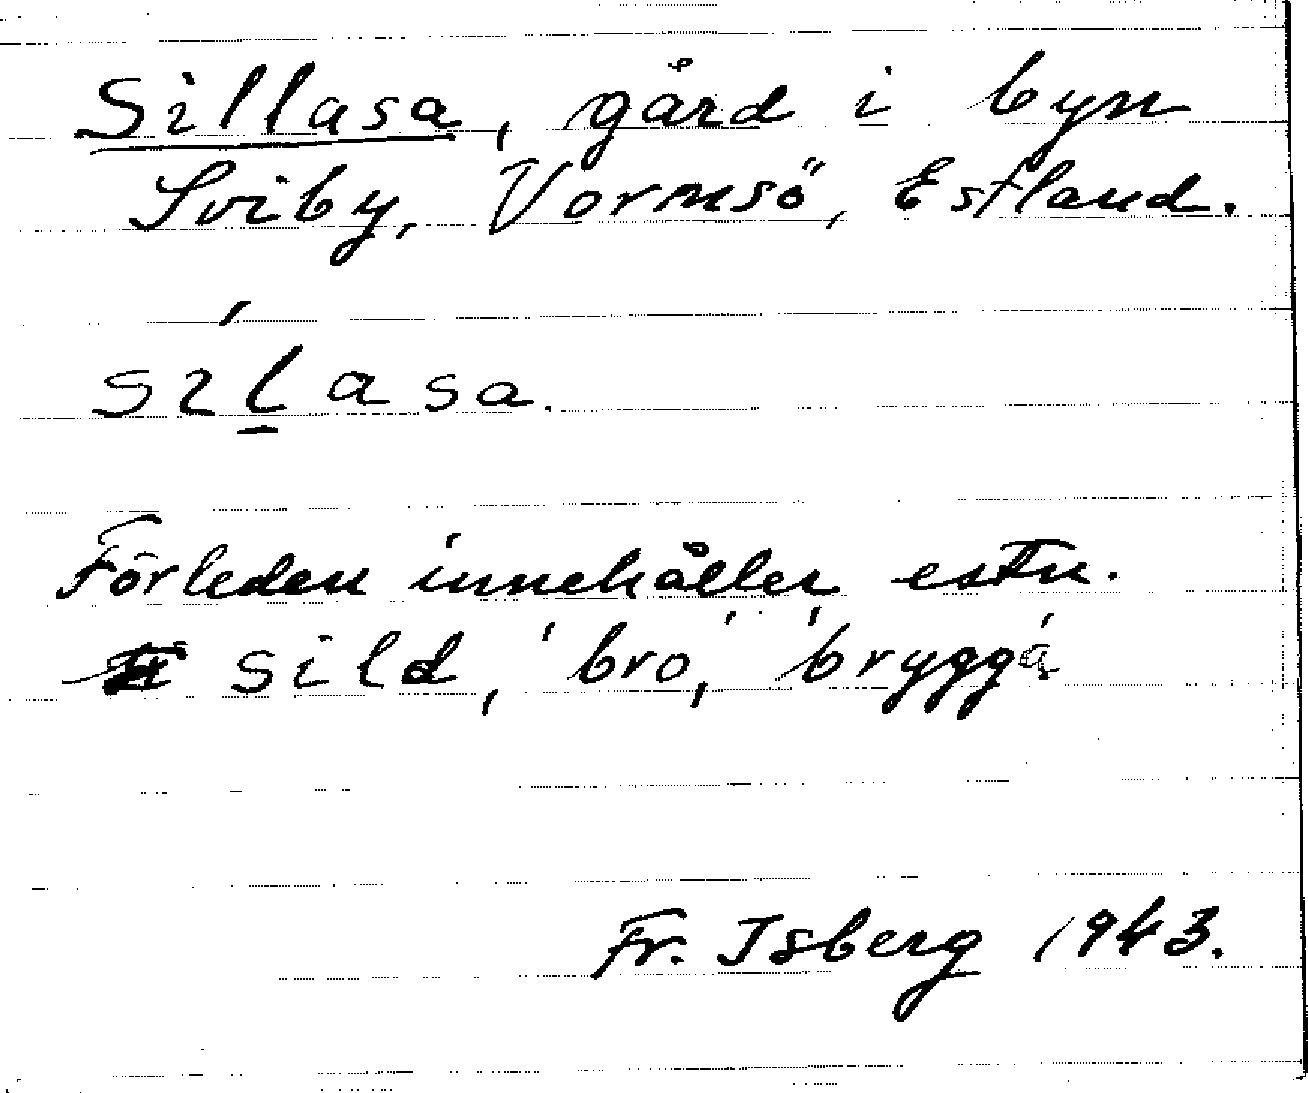 Sillasa, gård i byn
Sviby, Vormsö, Estland.
sílasa.
Förleden innehåller estn.
sild, 'bro,' 'brygga'
Fr. Isberg 1943.